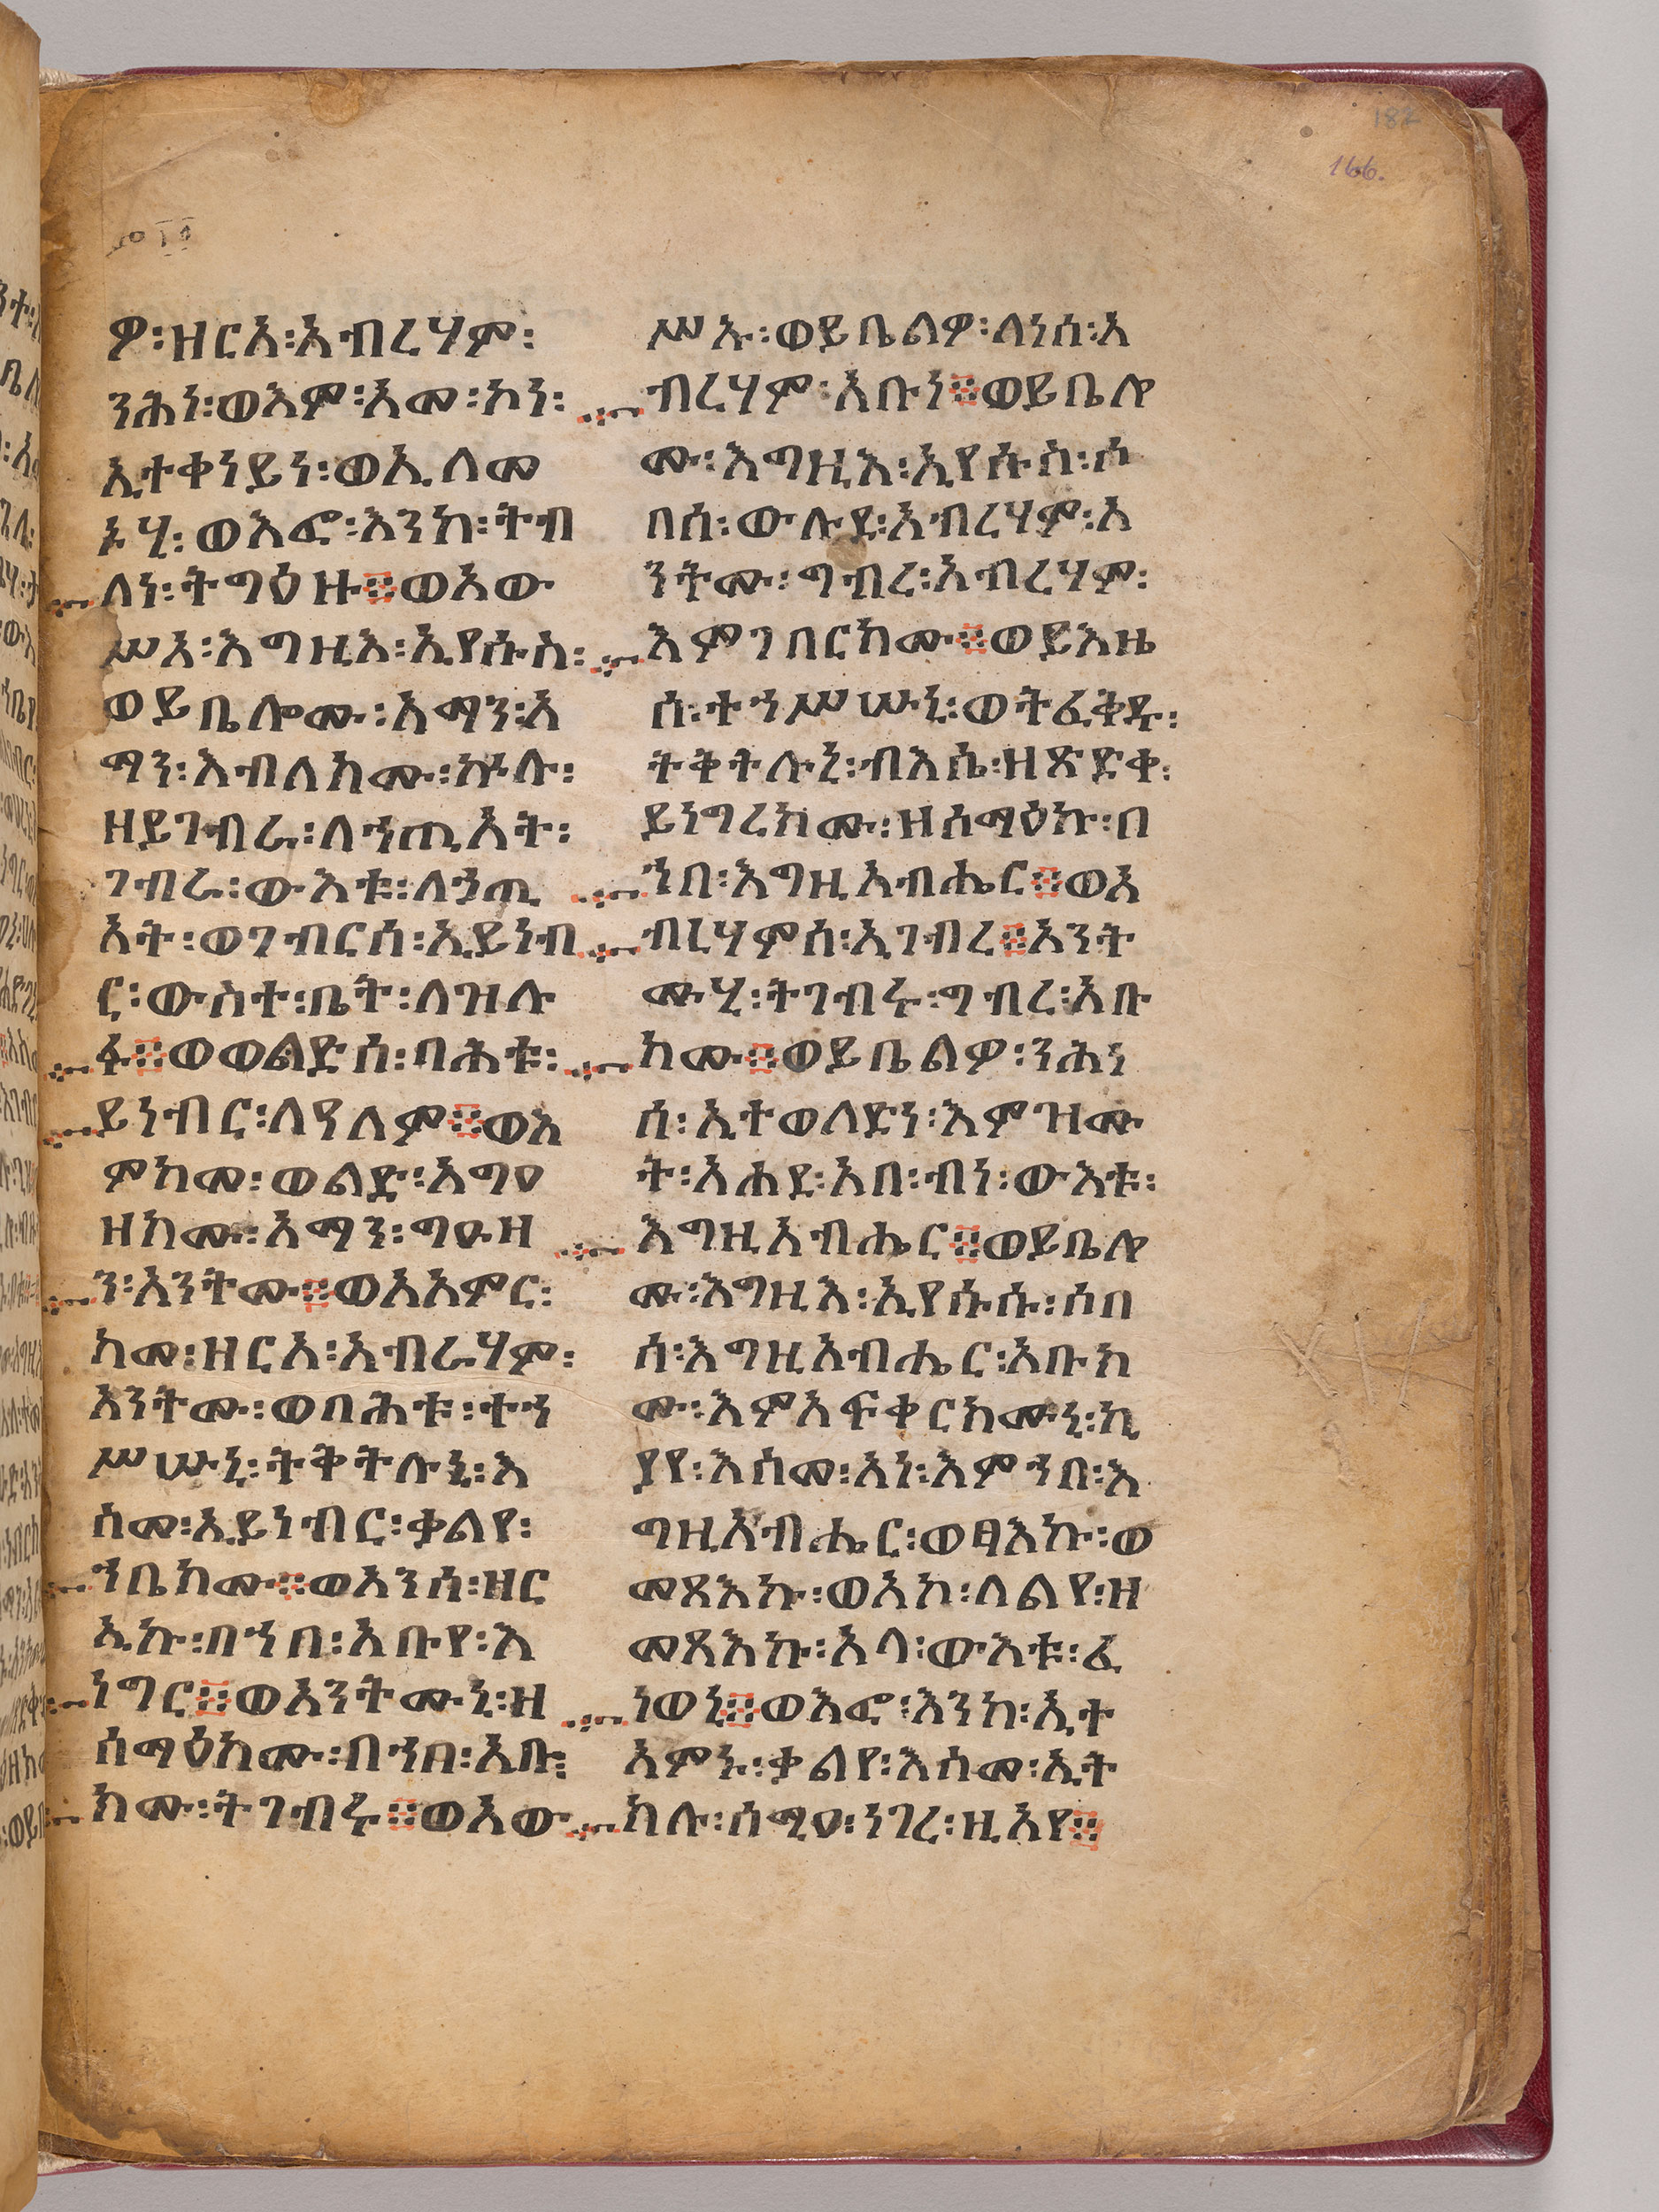 182
166.
ዎ፡ዘርአ፡አብረሃም፡
ንሕነ፡ወእም፡አመ፡ኮነ፡
ኢተቀነይነ፡ወኢለመ
ኑሂ፡ወእፎ፡እንከ፡ትብ
ለነ፡ትግዕዙ፨ወአው
ሥአ፡እግዚእ፡ኢየሱስ፡
ወይቤሎሙ፡አማን፡አ
ማን፡እብለክሙ፡ኵሉ፡
ዘይገብራ፡ለኀጢአት፡
ገብራ፡ውእቱ፡ለኃጢ
አት፡ወገብርሰ፡ኢይነብ
ር፡ውስተ፡ቤት፡ለዝሉ
ፉ፨ወወልድሰ፡ባሕቱ፡
ይነብር፡ለዓለም፨ወእ
ምከመ፡ወልድ፡አግዐ
ዘክሙ፡አማን፡ግዑዛ
ን፡አንትሙ፨ወአአምር፡
ከመ፡ዘርአ፡አብራሃም፡
አንትሙ፡ወባሕቱ፡ተኀ
ሥሡኒ፡ትቅትሉኒ፡እ
ስመ፡ኢይነብር፡ቃልየ፡
ኀቤክሙ፨ወአንሰ፡ዘር
ኢኩ፡በኀበ፡አቡየ፡እ
ነግር፨ወአንትሙኒ፡ዘ
ሰማዕክሙ፡በኀበ፡አቡ፡
ክሙ፡ትገብሩ፨ወአው
ሥኡ፡ወይቤልዎ፡ለነሰ፡አ
ብረሃም፡አቡነ፨ወይቤሎ
ሙ፡እግዚእ፡ኢየሱስ፡ሶ
በሰ፡ውሉደ፡አብረሃም፡አ
ንትሙ፡ግብረ፡አብረሃም፡
እምገበርክሙ፨ወይእዜ
ሰ፡ተኀሥሡኒ፡ወትፈቅዱ፡
ትቅትሉኒ፡ብእሴ፡ዘጽድቀ፡
ይነግረክሙ፡ዘሰማዕኩ፡በ
ኀበ፡እግዚአብሔር፨ወአ
ብርሃምሰ፡ኢገብረ፨አንት
ሙሂ፡ትገብሩ፡ግብረ፡አቡ
ክሙ፨ወይቤልዎ፡ንሕነ
ሰ፡ኢተወለድነ፡እምዝሙ
ት፡አሐደ፡አበ፡ብነ፡ውእቱ፡
እግዚአብሔር፨ወይቤሎ
ሙ፡እግዚእ፡ኢየሱሱ፡ሶበ
ሰ፡እግዚአብሔር፡አቡክ
ሙ፡እምአፍቀርክሙኒ፡ኪ
ያየ፡እስመ፡አነ፡እምኀበ፡እ
ግዚአብሔር፡ወፃእኩ፡ወ
መጻእኩ፡ወአኮ፡ለልየ፡ዘ
መጻእኩ፡አላ፡ውእቱ፡ፈ
ነወኒ፨ወእፎ፡እንከ፡ኢት
አምኑ፡ቃልየ፡እስመ፡ኢት
ክሉ፡ሰሚዐ፡ነገረ፡ዚአየ፨